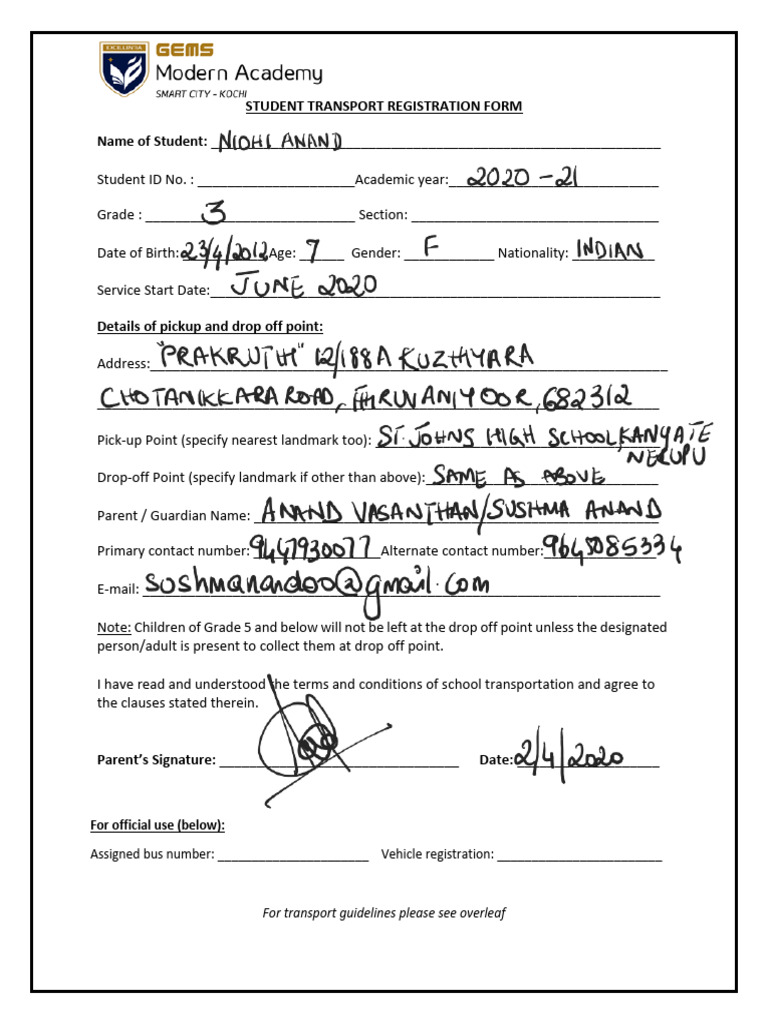 EXCELLENTIA
GEMS
Modern Academy
SMART CITY - KOCHI
STUDENT TRANSPORT REGISTRATION FORM
Name of Student: NIDHI ANAND
Student ID No. : Academic year: 2020 - 21
Grade : 3 Section:
Date of Birth: 23/4/2012 Age: 7 Gender: F Nationality: INDIAN
Service Start Date: JUNE 2020
Details of pickup and drop off point:
Address: "PRAKRUTHI" 12/188A KUZHIYARA
CHOTANIKKARA ROAD, THIRUVANIYOOR, 682312
Pick-up Point (specify nearest landmark too): ST. JOHNS HIGH SCHOOL, KANYATE
NERUPU
Drop-off Point (specify landmark if other than above): SAME AS ABOVE
Parent / Guardian Name: ANAND VASANTHAN/SUSHMA ANAND
Primary contact number: 9447930077 Alternate contact number: 9645085334
E-mail: sushmanand00@gmail.com
Note: Children of Grade 5 and below will not be left at the drop off point unless the designated
person/adult is present to collect them at drop off point.
I have read and understood the terms and conditions of school transportation and agree to
the clauses stated therein.
Parent's Signature: Date: 2/4/2020
For official use (below):
Assigned bus number: Vehicle registration:
For transport guidelines please see overleaf